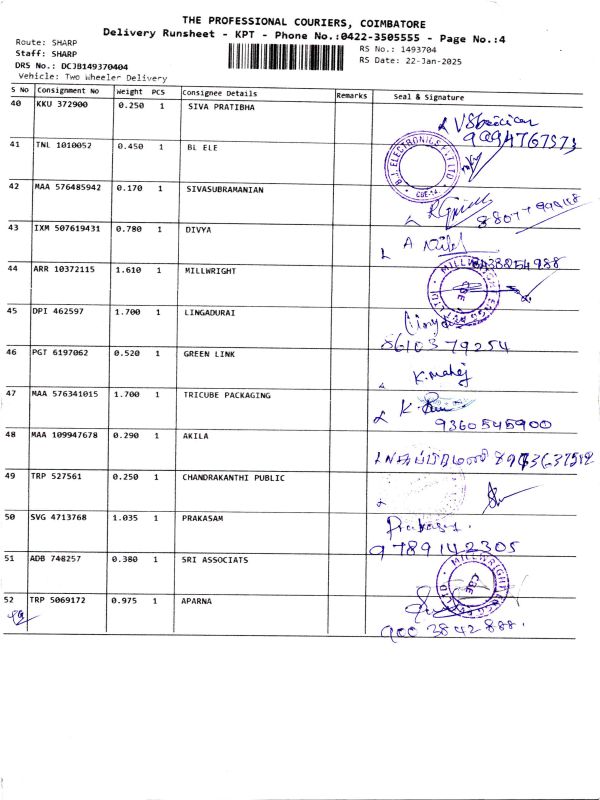 THE PROFESSIONAL COURIERS, COIMBATORE
Delivery Runsheet - KPT - Phone No.:0422-3505555 - Page No.:4
Route: SHARP
Staff: SHARP
DRS No.: DCJB149370404
Vehicle: Two Wheeler Delivery
RS No.: 1493704
RS Date: 22-Jan-2025
S No Consignment No Weight PCS Consignee Details Remarks Seal & Signature
40 KKU 372900 0.250 1 SIVA PRATIBHA
9094767573
41 TNL 1010052 0.450 1 BL ELE
B.J. ELECTRONICS PVT LTD CBE-14
42 MAA 576485942 0.170 1 SIVASUBRAMANIAN
43 IXM 507619431 0.780 1 DIVYA
A
8438254988
44 ARR 10372115 1.610 1 MILLWRIGHT
MILLWRIGHT ENGG CBE
45 DPI 462597 1.700 1 LINGADURAI
8610379254
46 PGT 6197062 0.520 1 GREEN LINK
K. Mahej
47 MAA 576341015 1.700 1 TRICUBE PACKAGING
K.
9360545900
48 MAA 109947678 0.290 1 AKILA
49 TRP 527561 0.250 1 CHANDRAKANTHI PUBLIC
50 SVG 4713768 1.035 1 PRAKASAM
Prakasam.
9789142305
51 ADB 748257 0.380 1 SRI ASSOCIATS
MILLWRIGHT ENGG CBE
52 TRP 5069172 0.975 1 APARNA
900 3842 888.